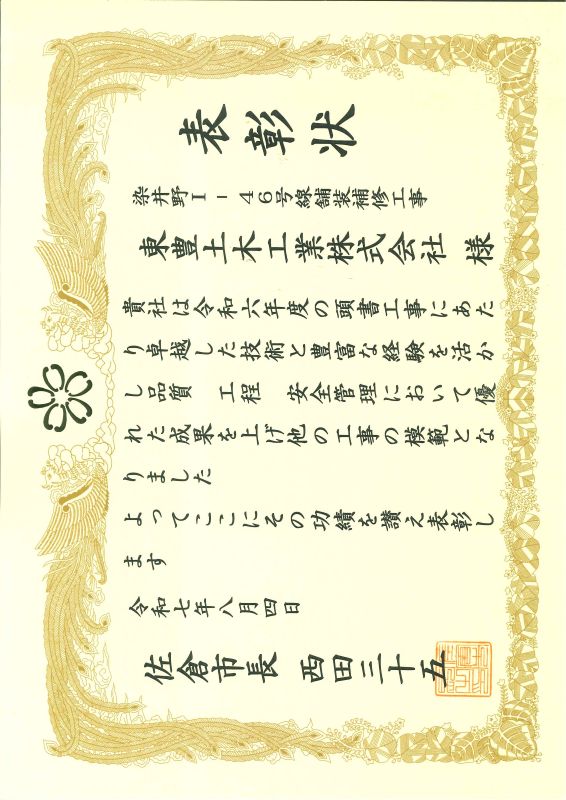 表彰状
染井野Ⅰ－４６号線舗装補修工事
東豊土木工業株式会社 様
貴社は令和六年度の頭書工事にあた
り卓越した技術と豊富な経験を活か
し品質 工程 安全管理において優
れた成果を上げ他の工事の模範とな
りました
よってここにその功績を讃え表彰し
ます
令和七年八月四日
佐倉市長 西田三十五